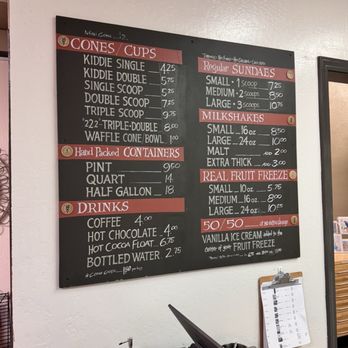 CONES/CUPS
KIDDIE SINGLE 4.25
KIDDIE DOUBLE 5.75
SINGLE SCOOP 5.75
DOUBLE SCOOP 7.25
TRIPLE SCOOP 9.75
"222" TRIPLE-DOUBLE 8.00
WAFFLE CONE/BOWL 1.00
Hand Packed CONTAINERS
PINT 9.50
QUART 14
HALF GALLON 18
DRINKS
COFFEE 4.00
HOT CHOCOLATE 4.00
HOT COCOA FLOAT 6.75
BOTTLED WATER 2.75
Regular SUNDAES
SMALL - 1 SCOOP 7.25
MEDIUM - 2 SCOOPS 8.50
LARGE - 3 SCOOPS 10.75
MILKSHAKES
SMALL 16 oz 8.50
LARGE 24 oz 10.00
MALT ADD 2.00
EXTRA THICK ADD 3.00
REAL FRUIT FREEZE
SMALL 10 oz 5.75
MEDIUM 16 oz 8.00
LARGE 24 oz 10.75
50/50
VANILLA ICE CREAM added to the
FRUIT FREEZE